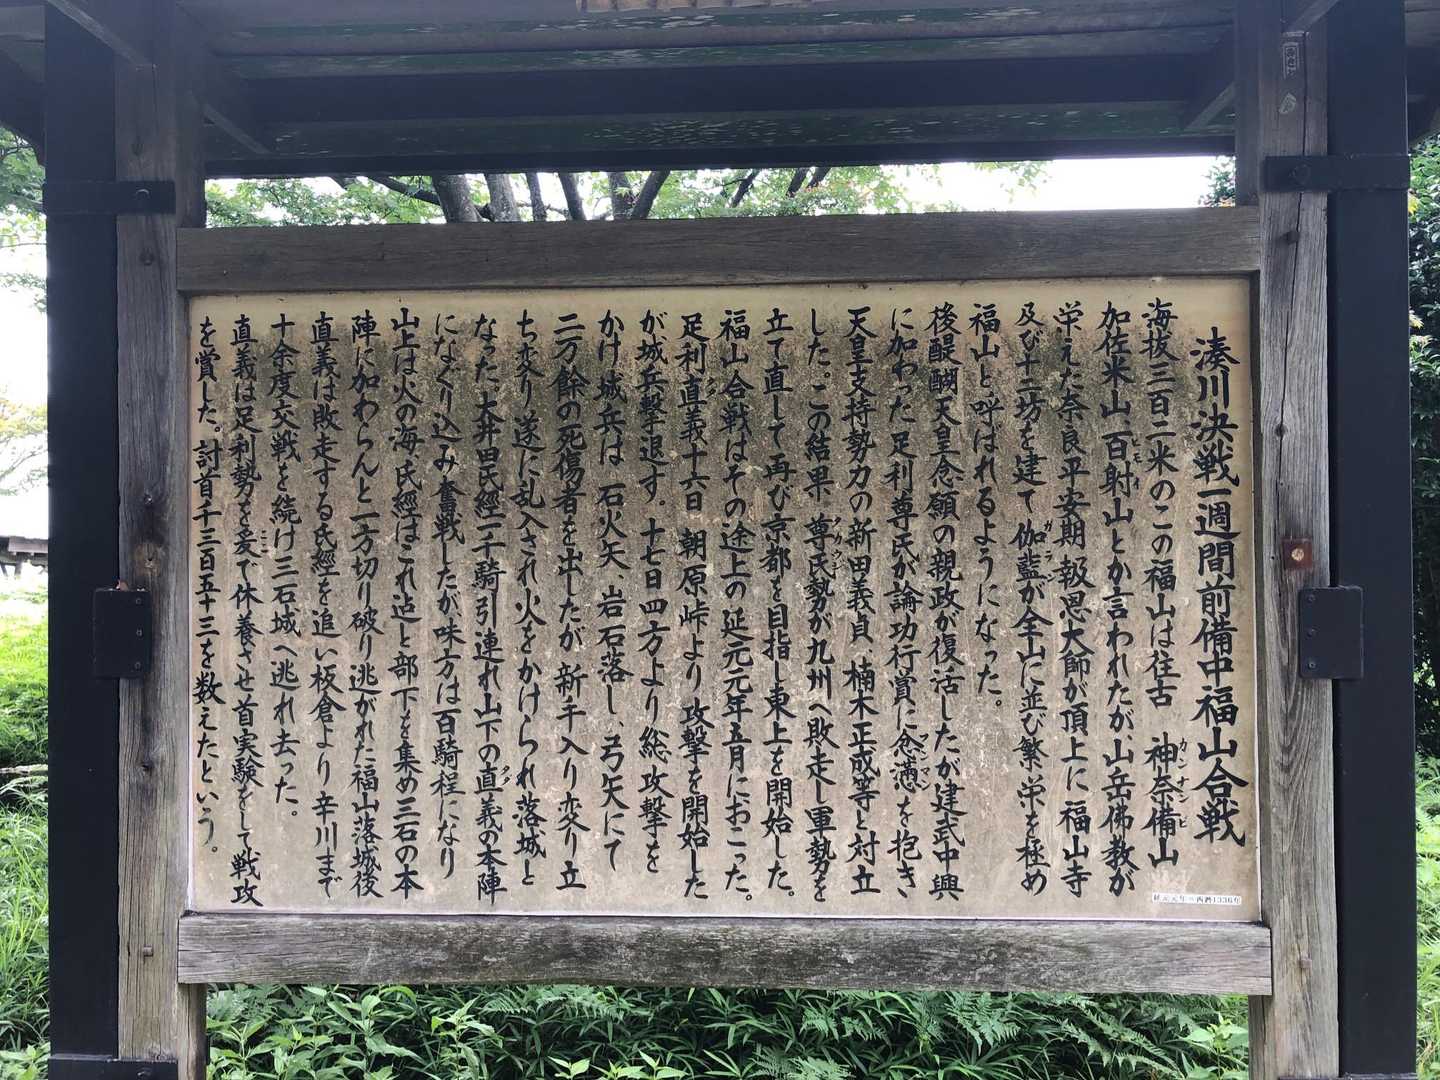 湊川決戦一週間前備中福山合戦
海抜三百二米のこの福山は往古 神奈備山
カンナンビ
加佐米山、百射山とか言われたが、山岳佛教が
栄えた奈良平安期 報恩大師が頂上に福山寺
及び十二坊を建て 伽藍が全山に並び繁栄を極め
ガラン
福山と呼ばれるようになった。
後醍醐天皇念願の親政が復活したが建武中興
に加わった足利尊氏が論功行賞に忿懣を抱き
フンマン
天皇支持勢力の新田義貞、楠木正成等と対立
した。この結果 尊氏勢が九州へ敗走し軍勢を
立て直して再び京都を目指し東上を開始した。
福山合戦はその途上の延元元年五月におこった。
足利直義十六日 朝原峠より攻撃を開始した
が城兵撃退す。十七日四方より総攻撃を
かけ城兵は 石火矢、岩石落し、弓矢にて
二万餘の死傷者を出したが 新手入り変り立
ち変り 遂に乱入され火をかけられ落城と
なった 大井田氏經一千騎引連れ山下の直義の本陣
になぐり込み奮戦したが味方は百騎程になり
山上は火の海 氏經はこれ迄と部下を集め三石の本
陣に加わらんと一方切り破り逃がれた福山落城後
直義は敗走する氏經を追い板倉より 辛川まで
十余度交戦を続け三石城へ逃れ去った。
直義は足利勢を爰で休養させ首実験をして戦攻
ここ
を賞した。討首千三百五十三を数えたという。
延元元年=西暦1336年